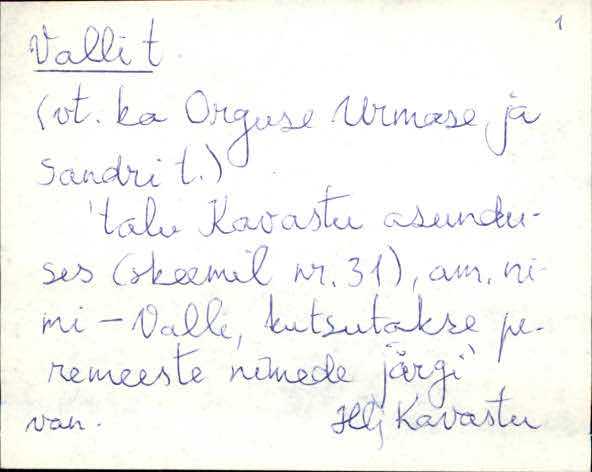 1
Valli t.
(vt. ka Orguse Urmase, ja
Sandri t.)
'talu Kavastu asundu-
ses (skeemil nr. 31), am. ni-
mi – Valli, kutsutakse pe-
remeeste nimede järgi'
van. Hlj Kavastu